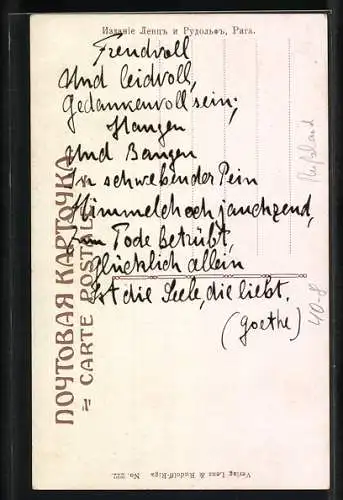 Изданіе Ленцъ и Рудольфъ, Рига.
Freudvoll
Und leidvoll,
Gedankenvoll sein;
Hangen
Und Bangen
In schwebender Pein
Himmelchoch jauchzend,
Zum Tode betrübt,
Glücklich allein
Ist die Seele, die liebt.
(Goethe)
ПОЧТОВАЯ КАРТОЧКА
CARTE POSTALE
Rußland
40-8
Verlag Lenz & Rudolff-Riga No. 222.